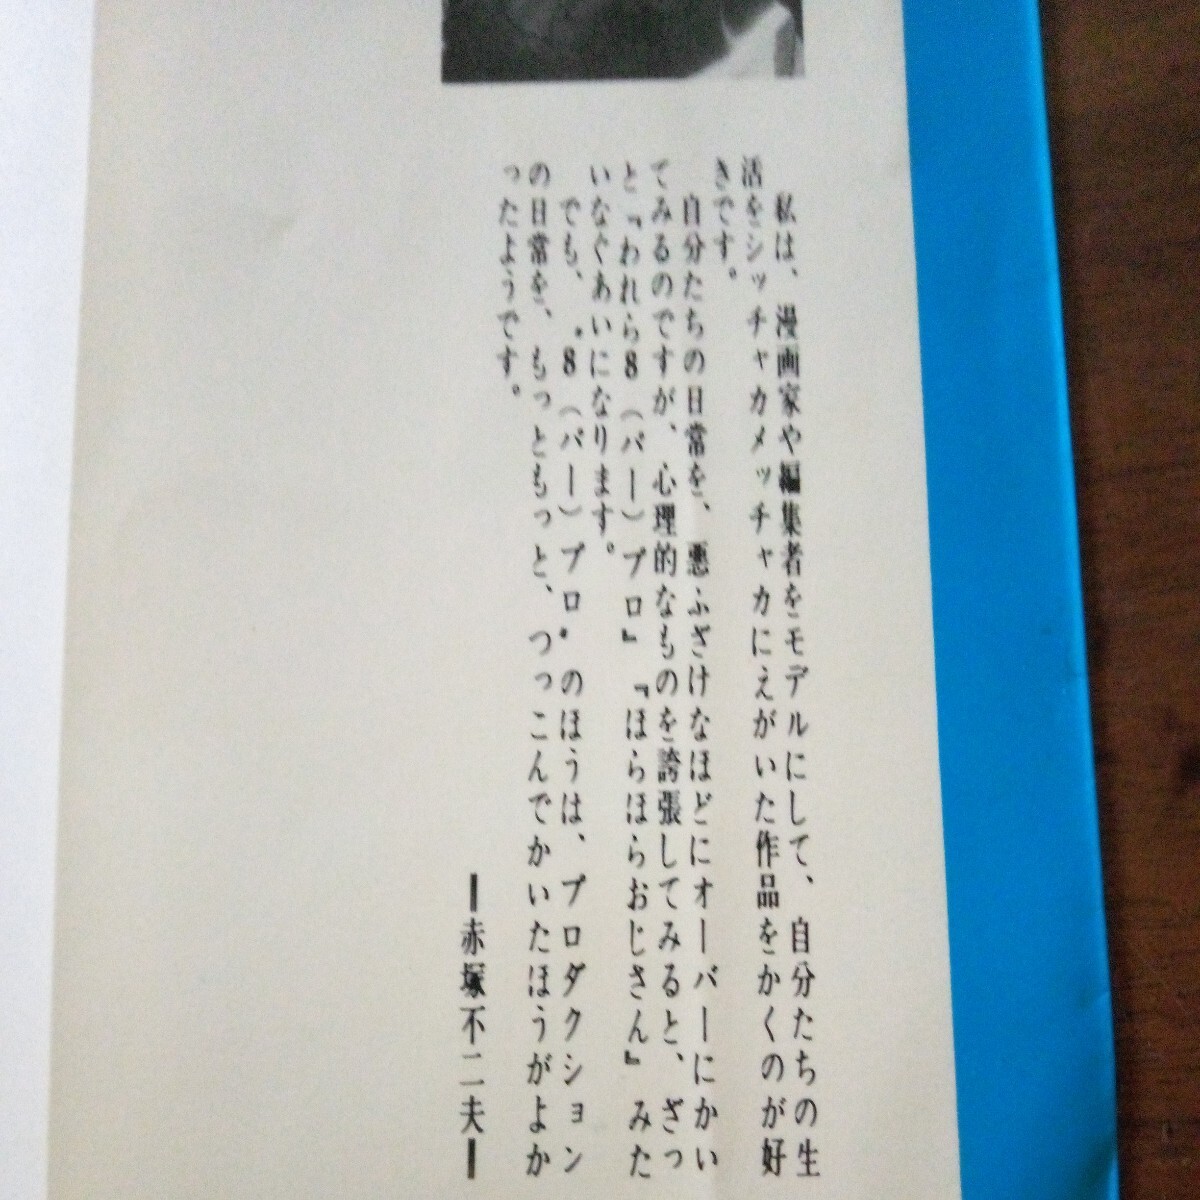 私は、漫画家や編集者をモデルにして、自分たちの生
活をシッチャカメッチャカにえがいた作品をかくのが好
きです。
自分たちの日常を、悪ふざけなほどにオーバーにかい
てみるのですが、心理的なものを誇張してみると、ざっ
と『われら8（パー）プロ』『ほらほらおじさん』みた
いなぐあいになります。
でも、〝8（パー）プロ〟のほうは、プロダクション
の日常を、もっともっと、つっこんでかいたほうがよか
ったようです。
―赤塚不二夫―